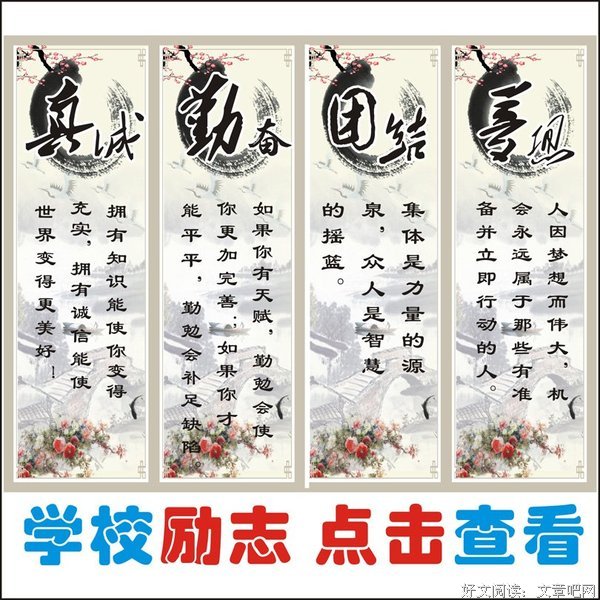 真诚
拥有知识能使你变得
充实，拥有诚信能使
世界变得更美好！
勤奋
如果你有天赋，勤勉会使
你更加完善；如果你才
能平平，勤勉会补足缺陷。
团结
集体是力量的源
泉，众人是智慧
的摇篮。
人因梦想而伟大，机
会永远属于那些有准
备并立即行动的人。
学校励志 点击查看
好文阅读：文章吧网